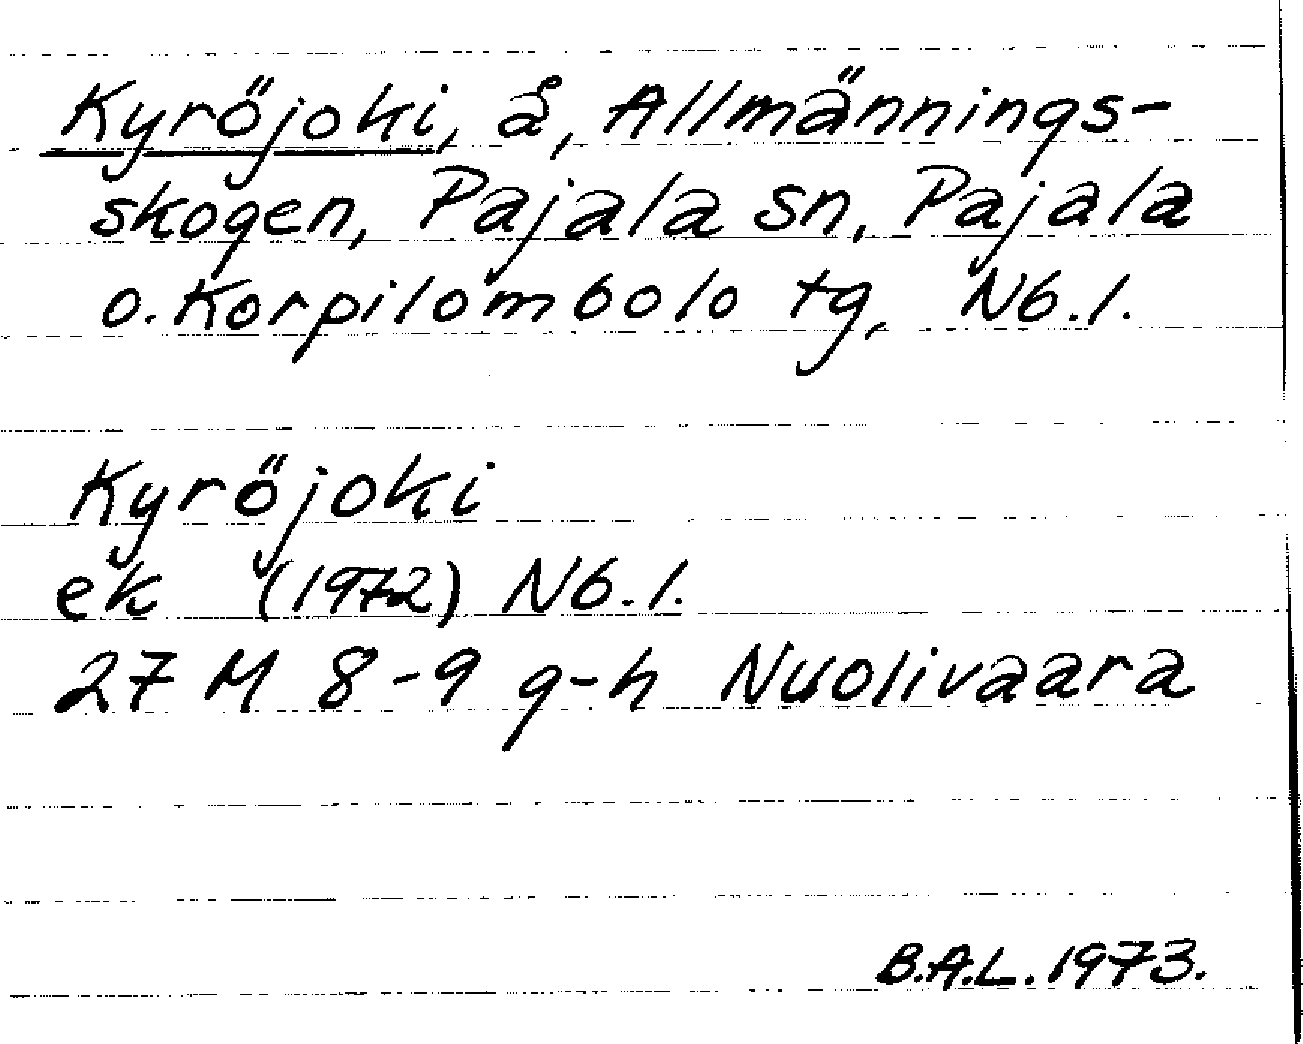 Kyröjoki, å, Allmännings-
skogen, Pajala sn, Pajala
o. Korpilombolo tg, Nb.l.
Kyröjoki
ek (1972) Nb.l.
27 M 8-9 g-h Nuolivaara
B.A.L. 1973.